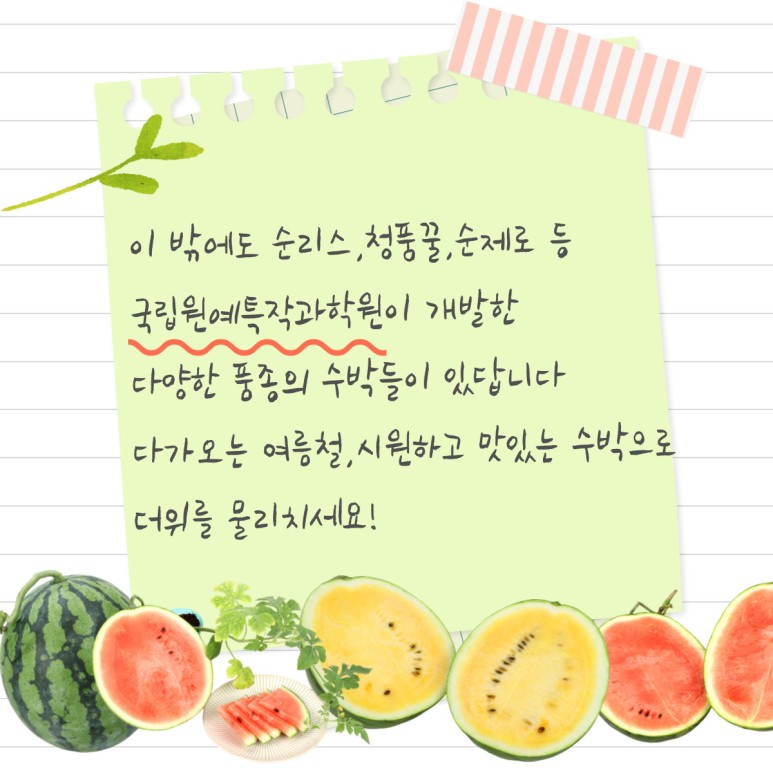 이 밖에도 순리스,청풍꿀,순제로 등
국립원예특작과학원이 개발한
다양한 품종의 수박들이 있답니다
다가오는 여름철,시원하고 맛있는 수박으로
더위를 물리치세요!